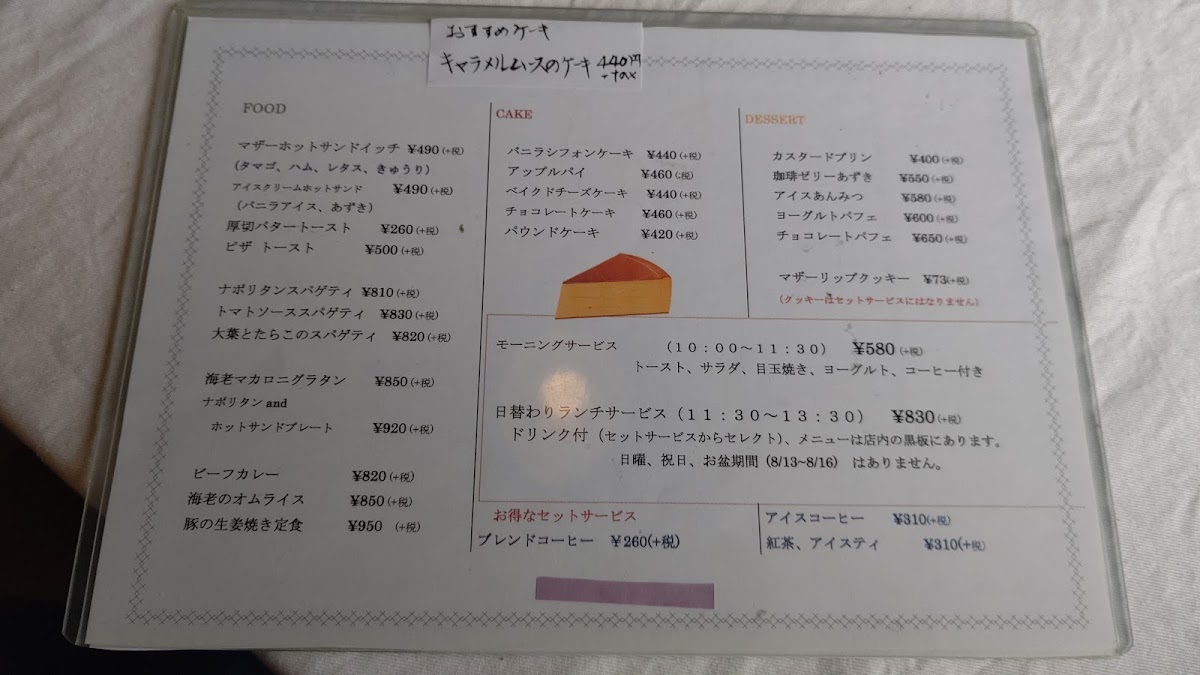 おすすめケーキ
キャラメルムースのケーキ 440円
+tax
FOOD
マザーホットサンドイッチ ¥490(+税)
(タマゴ、ハム、レタス、きゅうり)
アイスクリームホットサンド ¥490(+税)
(バニラアイス、あずき)
厚切バタートースト ¥260(+税)
ピザ トースト ¥500(+税)
ナポリタンスパゲティ ¥810(+税)
トマトソーススパゲティ ¥830(+税)
大葉とたらこのスパゲティ ¥820(+税)
海老マカロニグラタン ¥850(+税)
ナポリタン and
ホットサンドプレート ¥920(+税)
ビーフカレー ¥820(+税)
海老のオムライス ¥850(+税)
豚の生姜焼き定食 ¥950 (+税)
CAKE
バニラシフォンケーキ ¥440(+税)
アップルパイ ¥460(+税)
ベイクドチーズケーキ ¥440(+税)
チョコレートケーキ ¥460(+税)
パウンドケーキ ¥420(+税)
DESSERT
カスタードプリン ¥400(+税)
珈琲ゼリーあずき ¥550(+税)
アイスあんみつ ¥580(+税)
ヨーグルトパフェ ¥600(+税)
チョコレートパフェ ¥650(+税)
マザーリップクッキー ¥73(+税)
(クッキーはセットサービスにはなりません)
モーニングサービス (10:00～11:30) ¥580(+税)
トースト、サラダ、目玉焼き、ヨーグルト、コーヒー付き
日替わりランチサービス(11:30～13:30) ¥830(+税)
ドリンク付(セットサービスからセレクト)、メニューは店内の黒板にあります。
日曜、祝日、お盆期間(8/13~8/16) はありません。
お得なセットサービス
ブレンドコーヒー ¥260(+税)
アイスコーヒー ¥310(+税)
紅茶、アイスティ ¥310(+税)